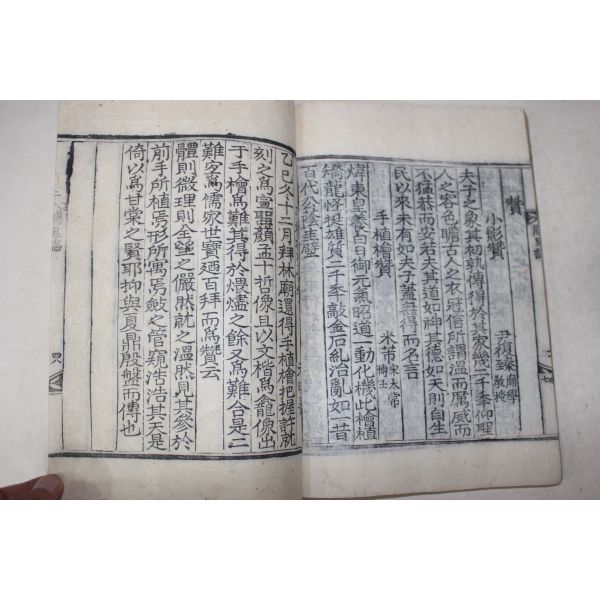 贊
小影贊 尹復臻 廟學教授
夫子之象其初孰傳得於其家幾二千季仰聖
人之容色瞻古人之衣冠信所謂溫而厲威而
不猛恭而安若夫其道如神其德如天則自生
民以來未有如夫子蓋無得而名言
手植檜贊 米芾 宋太常博士
煒東皇養白日御元氣昭道一動化機此檜植
矯龍怪挺雄質二千季敵金石糺治亂如一昔
百代公蔭圭璧
乙巳冬十二月拜林廟還得手植檜把握許就
刻之爲宣聖顏孟十哲像且以文楷爲龕像出
于手檜爲難其得於煨燼之餘又爲難合是二
難字爲儒家世寶廼百拜而爲贊云
體則微理則全望之儼然就之溫然見其參於
前手所植焉形所寓焉鮍之管窺浩浩其天是
倚以爲甘棠之賢耶抑與夏鼎殷盤而傳也
四八